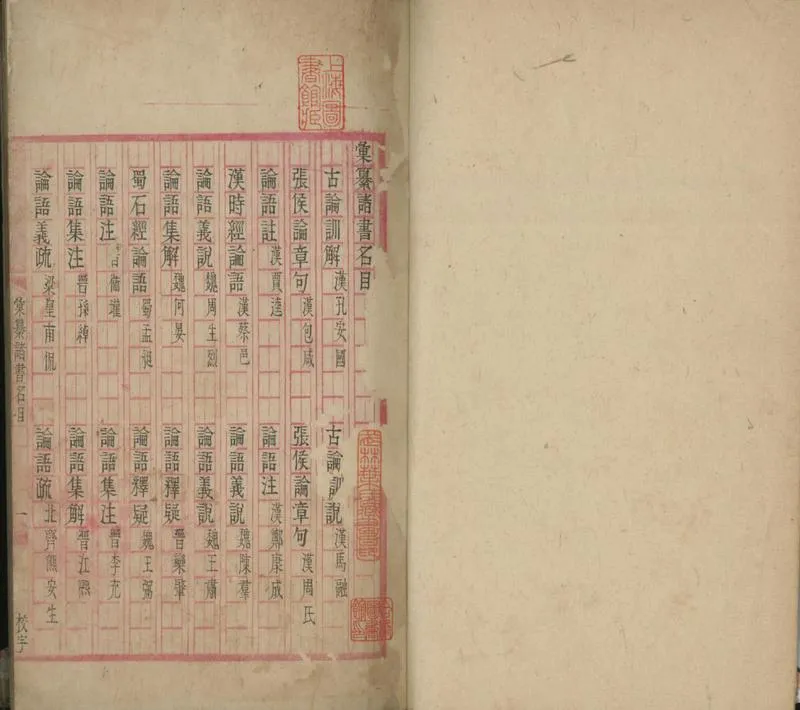 彙纂諸書名目
古論訓解 漢孔安國 古論訓說 漢馬融
張侯論章句 漢包咸 張侯論章句 漢周氏
論語註 漢賈逵 論語注 漢鄭康成
漢時經論語 漢蔡邕 論語義說 魏陳羣
論語義說 魏周生烈 論語義說 魏王肅
論語集解 魏何晏 論語釋疑 晉欒肇
蜀石經論語 蜀孟昶 論語釋疑 魏王弼
論語注 晉衞瓘 論語集注 晉李充
論語集注 晉孫綽 論語集解 晉江熙
論語義疏 梁皇甫侃 論語疏 北齊熊安生
彙纂諸書名目 一 校字
上海圖書館藏